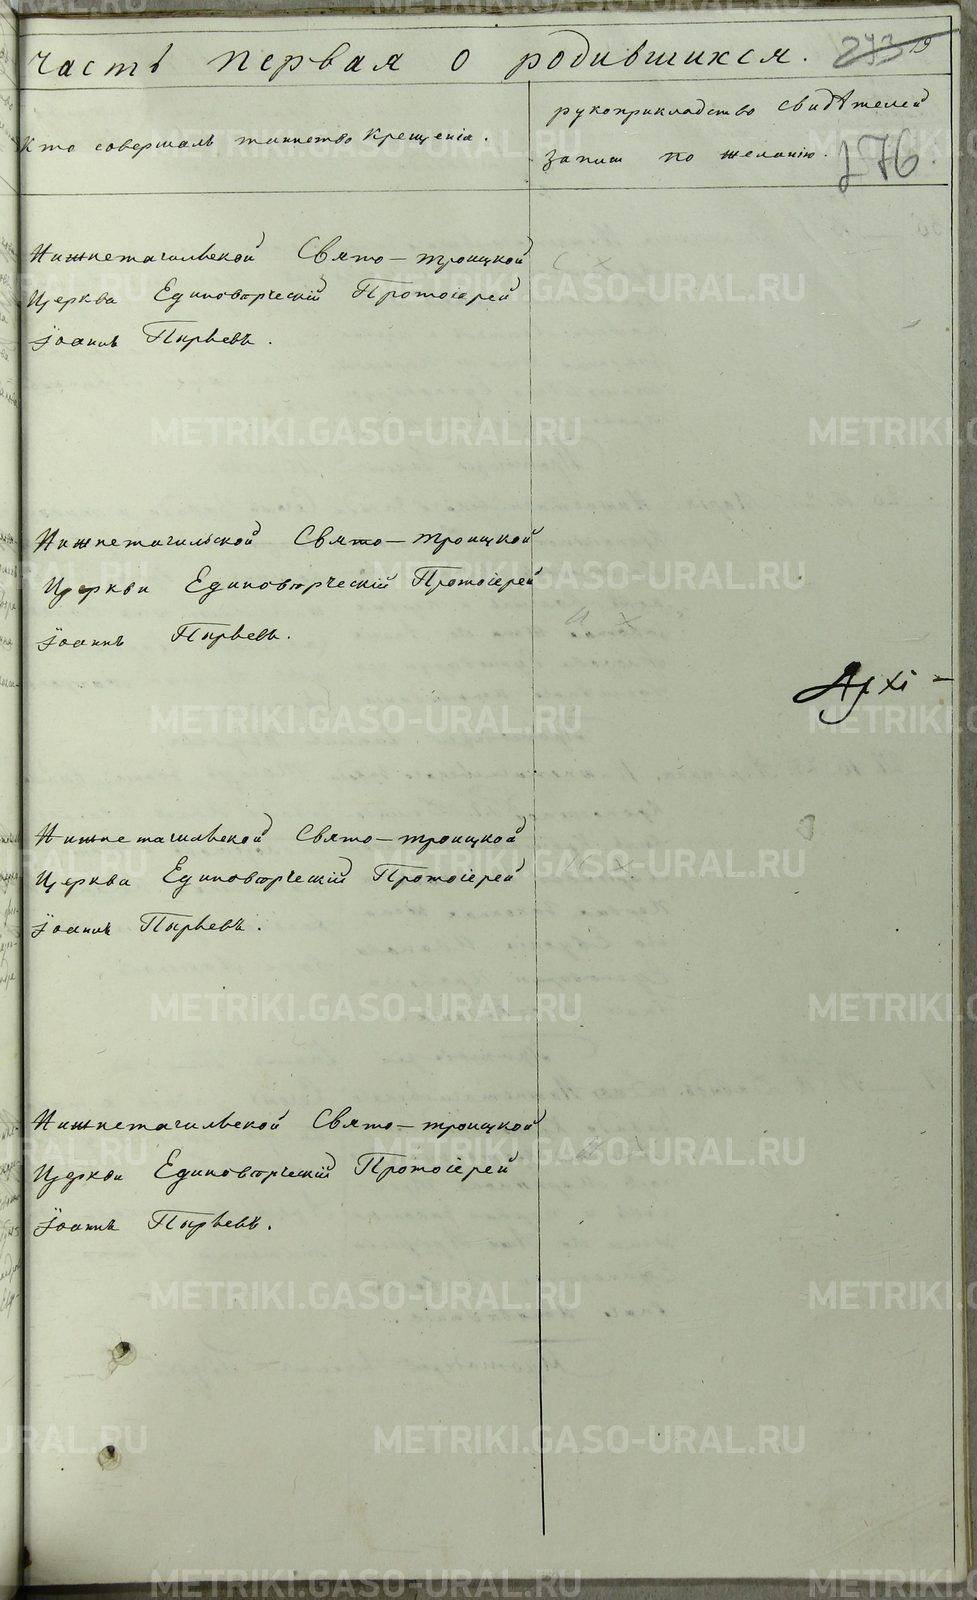 часть первая о родившихся. 273 19
Кто совершалъ таинство Крещенія.
рукоприкладство свидѣтелей
записи по желанію.
276.
Нижнетагильской Свято-троицкой
Церкви Единовѣрческій Протоіерей
Іоаннъ Пырьевъ.
Нижнетагильской Свято-троицкой
Церкви Единовѣрческій Протоіерей
Іоаннъ Пырьевъ.
Архі-
Нижнетагильской Свято-троицкой
Церкви Единовѣрческій Протоіерей
Іоаннъ Пырьевъ.
Нижнетагильской Свято-троицкой
Церкви Единовѣрческій Протоіерей
Іоаннъ Пырьевъ.
METRIKI.GASO-URAL.RU